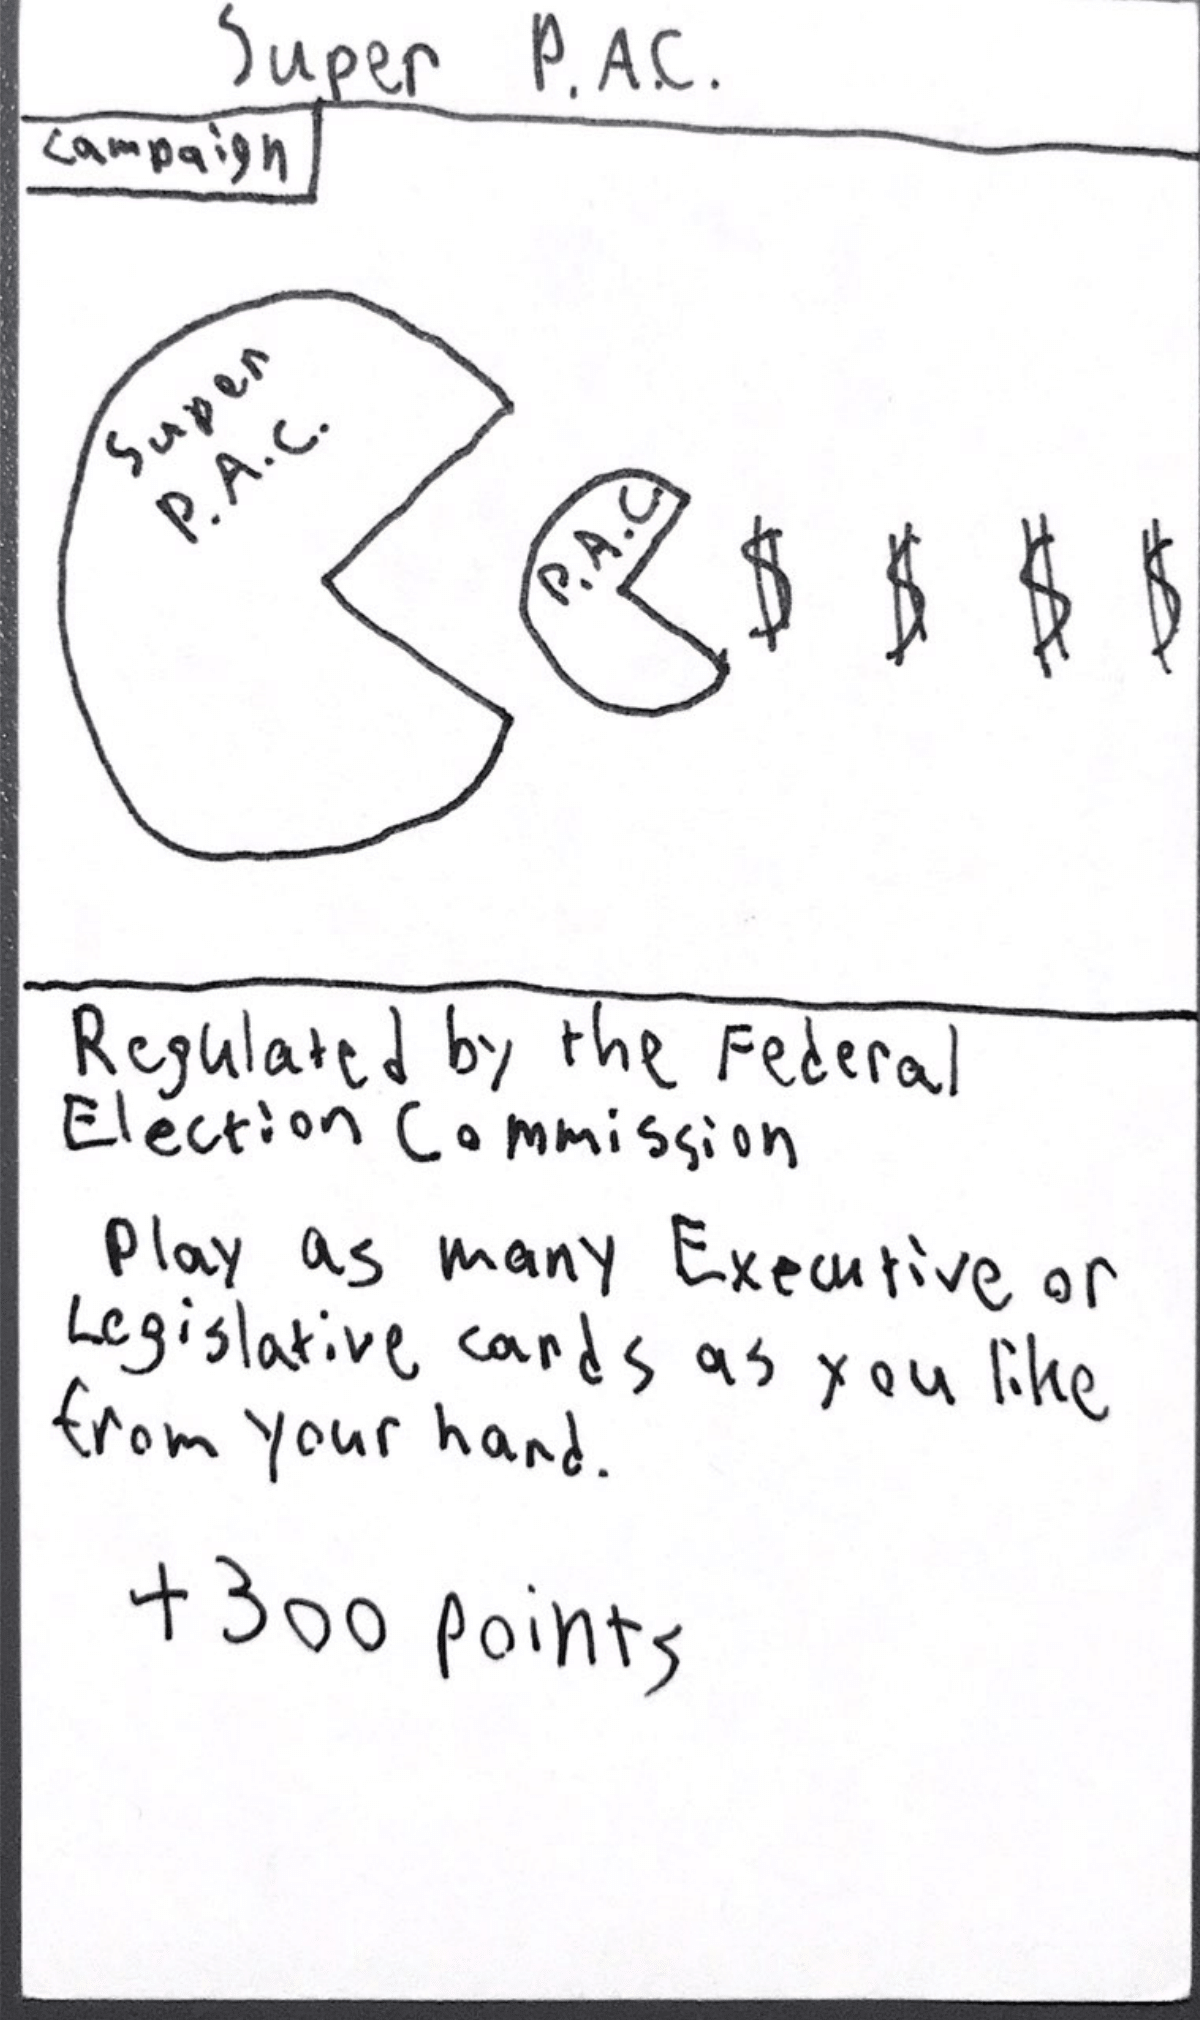 Super P.A.C.
campaign
Super
P.A.C.
P.A.C
$ $ $ $
Regulated by the Federal
Election Commission
Play as many Executive or
Legislative cards as you like
from your hand.
+300 points